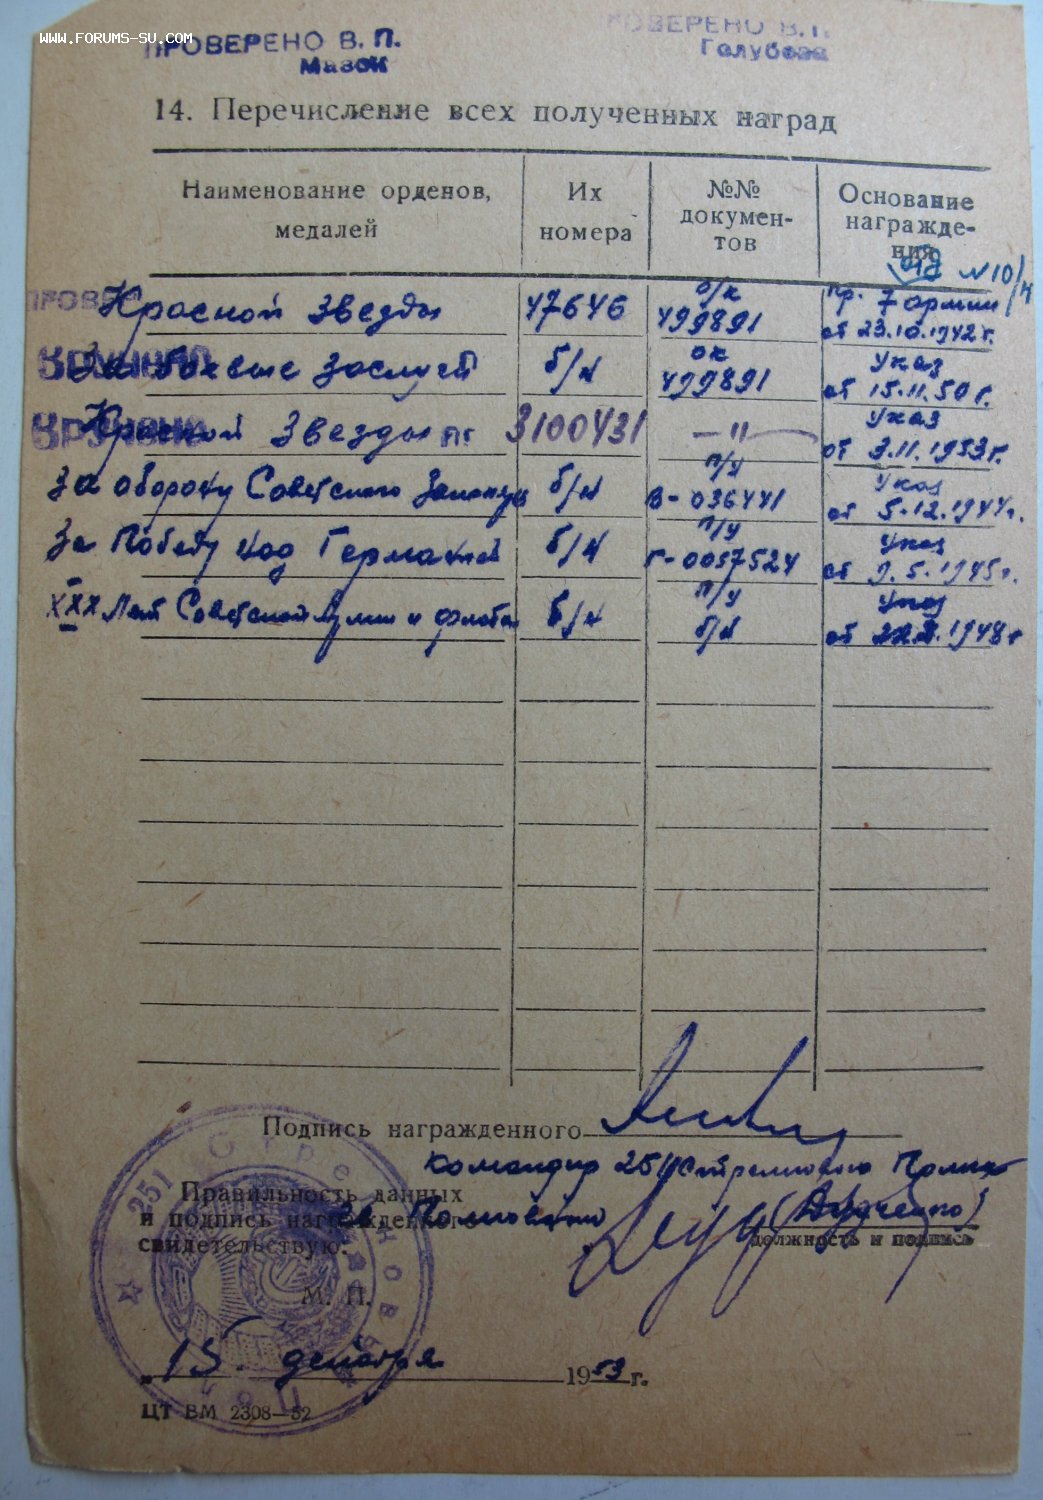 WWW.FORUMS-SU.COM
ПРОВЕРЕНО В. П.
Мазок
ПРОВЕРЕНО В. П.
Голубева
14. Перечисление всех полученных наград
Наименование орденов, медалей
Их номера
№№ докумен-тов
Основание награжде-ния
№ 10/н
Красной Звезды 47646 о/к 499891 Пр. 7 армии от 23.10.1942 г.
За боевые заслуги б/н ок 499891 Указ от 15.11.50 г.
Красной Звезды пг 3100431 — " — Указ от 3.11.1953 г.
За оборону Советского Заполяр б/н п/у В-036441 Указ от 5.12.1944 г.
За Победу над Германией б/н п/у Г-0057524 Указ от 9.5.1945 г.
XXX Лет Советской Армии и флота б/н п/у б/н Указ от 1948 г
ВРУЧЕНО
ВРУЧЕНА
Подпись награжденного
Командир 251 Стрелкового Полка
Правильность данных
и подпись награжденного
свидетельствую:
Полковник
должность и подпись
М. П.
„15" декабря 1953 г.
ЦТ ВМ 2308—52